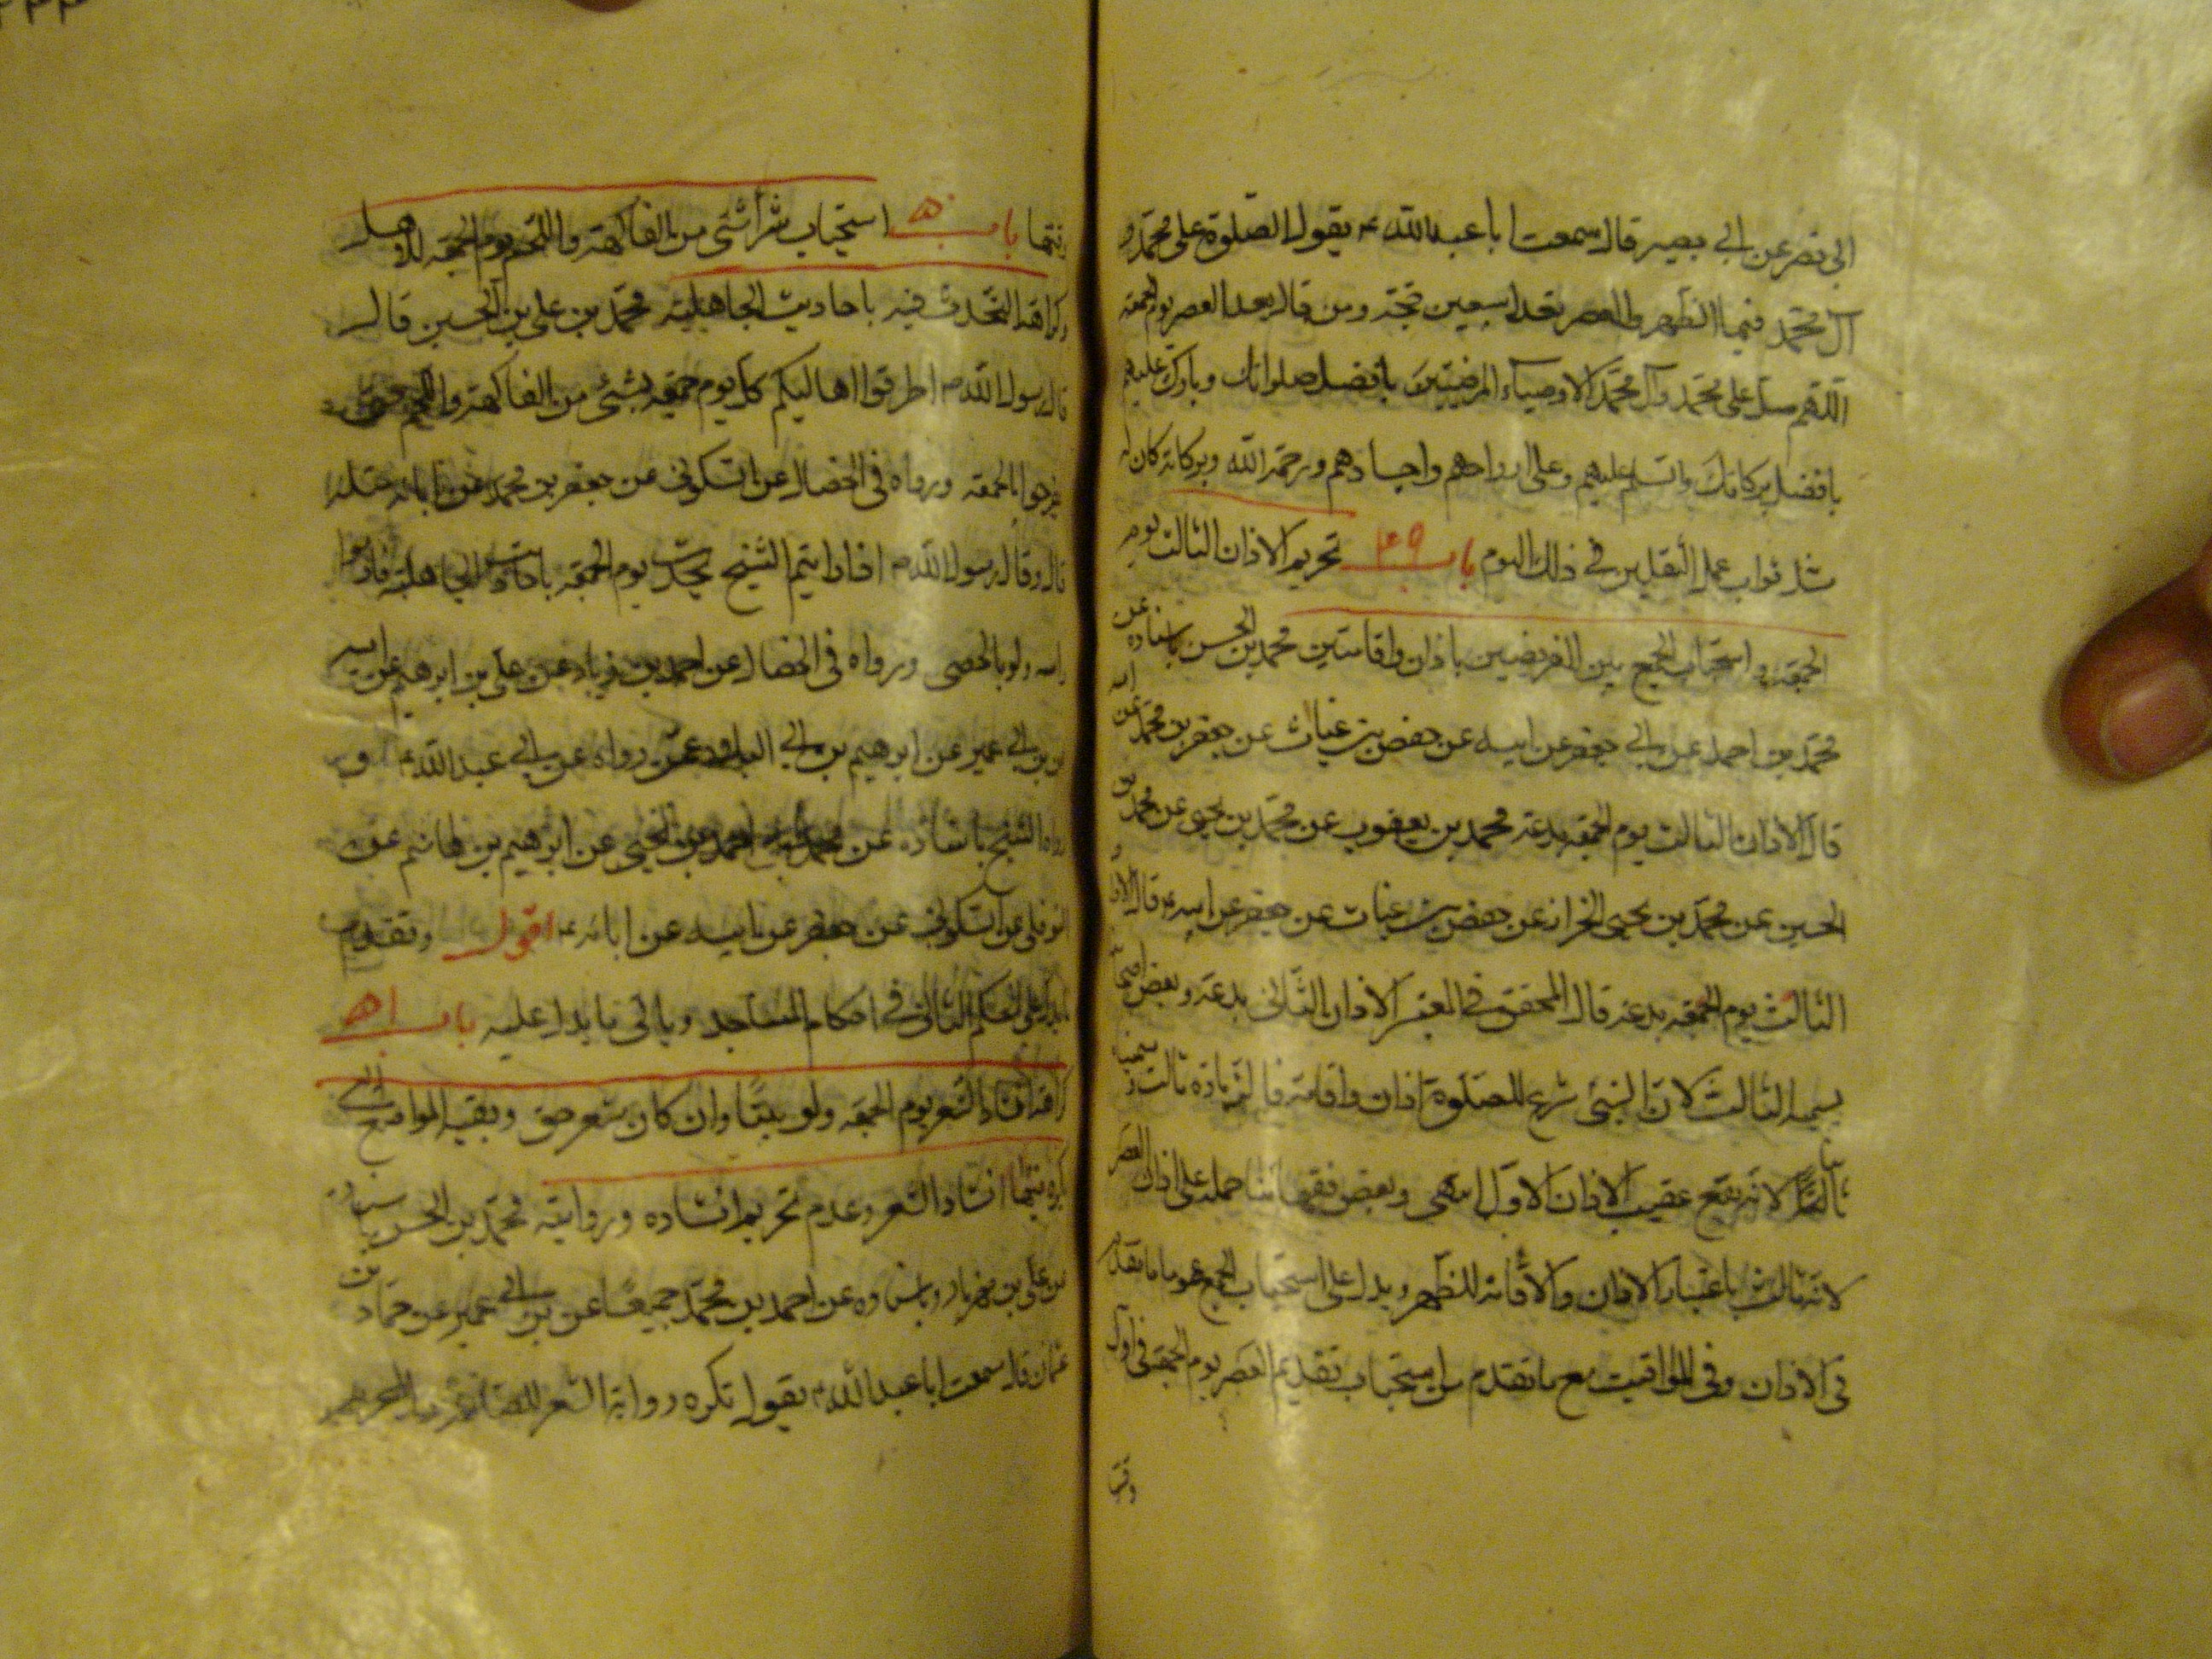 ابى نصر عن ابي بصير قال سمعت ابا عبد الله ع يقول الصلوة على محمد و
آل محمد فيما بين الظهر والعصر تعدل سبعين حجة ومن قال بعد العصر يوم الجمعة
اللهم صل على محمد وآل محمد الاوصياء المرضيين بافضل صلواتك وبارك عليهم
بافضل بركاتك والسلم عليهم وعلى ارواحهم واجسادهم ورحمة الله وبركاته كان له
مثل ثواب عمل الثقلين في ذلك اليوم باب ٤٩ تحريم الاذان الثالث يوم
الجمعة و استحباب الجمع بين الفرضين باذان واقامتين محمد بن الحسن باسناده عن
محمد بن احمد عن ابي جعفر عن ابيه عن حفص بن غياث عن جعفر بن محمد عن ابيه
قال الاذان الثالث يوم الجمعة بدعة محمد بن يعقوب عن محمد بن يحيى عن محمد بن
الحسين عن محمد بن يحيى الخزاز عن حفص بن غياث عن جعفر عن ابيه ع قال الاذان
الثالث يوم الجمعة بدعة قال المحقق في المعتبر الاذان الثانى بدعة وبعض اصحابنا
يسميه الثالث لان النبي شرع للصلوة اذان واقامة فالزيادة ثالث وسميناه
ثانيا لانه يقع عقيب الاذان الاول انتهى وبعض فقهائنا حمله على اذان العصر
لانه ثالث باعتبار الاذان والاقامة للظهر ويدل على استحباب الجمع عموما ما تقدم
في الاذان وفي المواقيت مع ما تقدم من استحباب تقديم العصر يوم الجمعة في اول
وقتها
وقتها باب ٥٠ استحباب شراء شئ من الفاكهة واللحم يوم الجمعة للاهل
وكراهة التحدث فيه باحاديث الجاهلية محمد بن علي بن الحسين قال
قال رسول الله ص اطرفوا اهاليكم كل يوم جمعة بشئ من الفاكهة واللحم حتى
يفرحوا بالجمعة ورواه في الخصال عن السكوني عن جعفر بن محمد عن ابائه مثله
قال وقال رسول الله ص اذا رايتم الشيخ يحدث يوم الجمعة باحاديث الجاهلية فارموا
راسه ولو بالحصى ورواه في الخصال عن احمد بن زياد عن علي بن ابرهيم عن ابيه
عن ابن ابي عمير عن ابرهيم بن ابي البلاد عمن رواه عن ابي عبد الله ع و
رواه الشيخ باسناده عن محمد بن احمد بن يحيى عن ابرهيم بن هاشم عن
النوفلي عن السكوني عن جعفر عن ابيه عن ابائه ع اقول وتقدم
ما يدل على الحكم الثاني في احكام المساجد وياتي ما يدل عليه باب ٥١
كراهة انشاد الشعر يوم الجمعة ولو بيتا وان كان شعر حق وبقية المواضع التي
يكره فيها انشاد الشعر وعدم تحريم انشاده وروايته محمد بن الحسن باسناده
عن علي بن مهزيار وباسناده عن احمد بن محمد جميعا عن ابن ابي عمير عن حماد بن
عثمان قال سمعت ابا عبد الله ع يقول تكره رواية الشعر للصائم